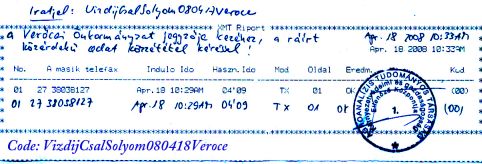 Iratjel: VizdijCsalSolyom080418Veroce
XMT Riport
Apr. 18 2008 10:33AM
a Verőcei Önkormányzat jegyzője kezéhez, a ráírt
közérdekű adat közzététel kérésül!
Apr. 18 2008 10:33AM
No. A masik telefax Indulo Ido Haszn.Ido Mod Oldal Eredm. Kod
01 27 38038127 Apr.18 10:29AM 04'09 Tx 01 Ok (00)
01 27 38038127 Apr.18 10:29AM 04'09 Tx 01 Ok (00)
TUDOMÁNYOS TÁRSASÁG
1.
Code: VizdijCsalSolyom080418Veroce